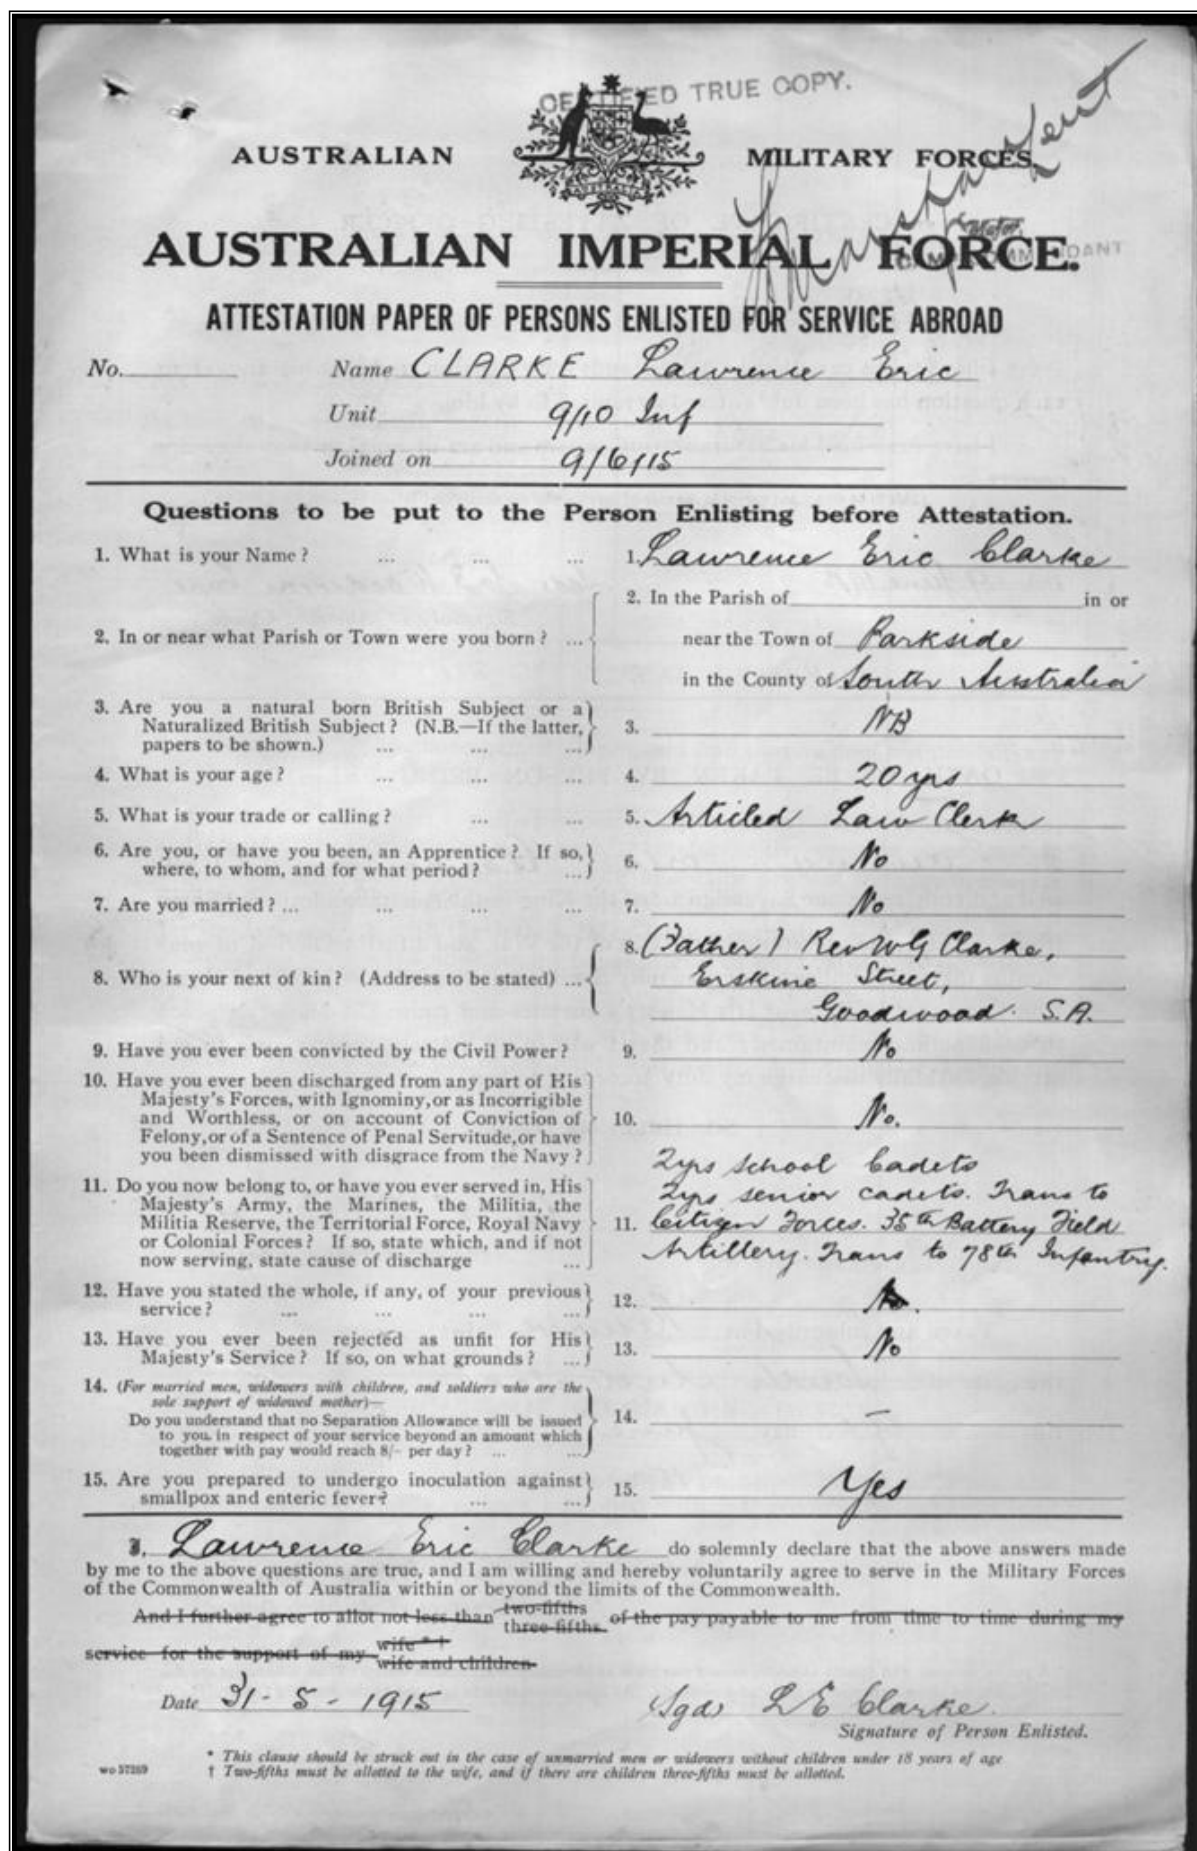 CERTIFIED TRUE COPY.
AUSTRALIAN MILITARY FORCES.
AUSTRALIA
AUSTRALIAN IMPERIAL FORCE.
Major
CAMP COMMANDANT
ATTESTATION PAPER OF PERSONS ENLISTED FOR SERVICE ABROAD
No. Name CLARKE Lawrence Eric
Unit 9/10 Inf
Joined on 9/6/15
Questions to be put to the Person Enlisting before Attestation.
1. What is your Name? ... ... ... 1. Lawrence Eric Clarke
2. In the Parish of in or
2. In or near what Parish or Town were you born? ... near the Town of Parkside
in the County of South Australia
3. Are you a natural born British Subject or a
Naturalized British Subject? (N.B.—If the latter, 3. NB
papers to be shown.) ... ... ...
4. What is your age? ... ... ... 4. 20 yrs
5. What is your trade or calling? ... ... 5. Articled Law Clerk
6. Are you, or have you been, an Apprentice? If so, 6. No
where, to whom, and for what period? ...
7. Are you married? ... ... ... ... 7. No
8. (Father) Rev W G Clarke,
8. Who is your next of kin? (Address to be stated) ... Erskine Street,
Goodwood. S.A.
9. Have you ever been convicted by the Civil Power? 9. No
10. Have you ever been discharged from any part of His
Majesty's Forces, with Ignominy, or as Incorrigible
and Worthless, or on account of Conviction of 10. No.
Felony, or of a Sentence of Penal Servitude, or have
you been dismissed with disgrace from the Navy?
2yrs School Cadets
11. Do you now belong to, or have you ever served in, His 2yrs senior cadets. Trans to
Majesty's Army, the Marines, the Militia, the
Militia Reserve, the Territorial Force, Royal Navy 11. Citizen Forces. 35th Battery Field
or Colonial Forces? If so, state which, and if not Artillery. Trans to 78th Infantry.
now serving, state cause of discharge ...
12. Have you stated the whole, if any, of your previous 12.
service? ... ... ... ...
13. Have you ever been rejected as unfit for His 13. No
Majesty's Service? If so, on what grounds? ...
14. (For married men, widowers with children, and soldiers who are the
sole support of widowed mother)—
Do you understand that no Separation Allowance will be issued 14. —
to you in respect of your service beyond an amount which
together with pay would reach 8/- per day? ... ...
15. Are you prepared to undergo inoculation against 15. Yes
smallpox and enteric fever? ... ...
I, Lawrence Eric Clarke do solemnly declare that the above answers made
by me to the above questions are true, and I am willing and hereby voluntarily agree to serve in the Military Forces
of the Commonwealth of Australia within or beyond the limits of the Commonwealth.
And I further agree to allot not less than two-fifths three-fifths of the pay payable to me from time to time during my
service for the support of my wife * † wife and children
Date 31-5-1915 (Sgd) L E Clarke.
Signature of Person Enlisted.
* This clause should be struck out in the case of unmarried men or widowers without children under 18 years of age
WO 57269 † Two-fifths must be allotted to the wife, and if there are children three-fifths must be allotted.